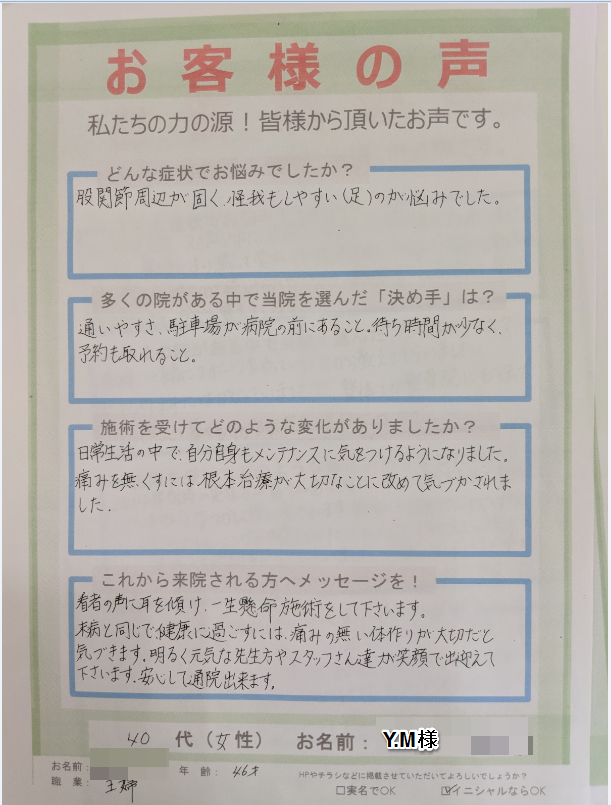 お客様の声
私たちの力の源！皆様から頂いたお声です。
どんな症状でお悩みでしたか？
股関節周辺が固く、怪我もしやすい（足）のが悩みでした。
多くの院がある中で当院を選んだ「決め手」は？
通いやすさ、駐車場が病院の前にあること。待ち時間が少なく、
予約も取れること。
施術を受けてどのような変化がありましたか？
日常生活の中で、自分自身もメンテナンスに気をつけるようになりました。
痛みを無くすには、根本治療が大切なことに改めて気づかされま
した.
これから来院される方へメッセージを！
看者の声に耳を傾け、一生懸命施術をして下さいます。
未病と同じで、健康に過ごすには、痛みの無い体作りが大切だと
気づきます。明るく元気な先生方やスタッフさん達が笑顔で出迎えて
下さいます。安心して通院出来ます。
40 代（女性） お名前： Y.M様
お名前：
年齢：46才
職業： 主婦
HPやチラシなどに掲載させていただいてよろしいでしょうか？
□実名でOK ☑イニシャルならOK